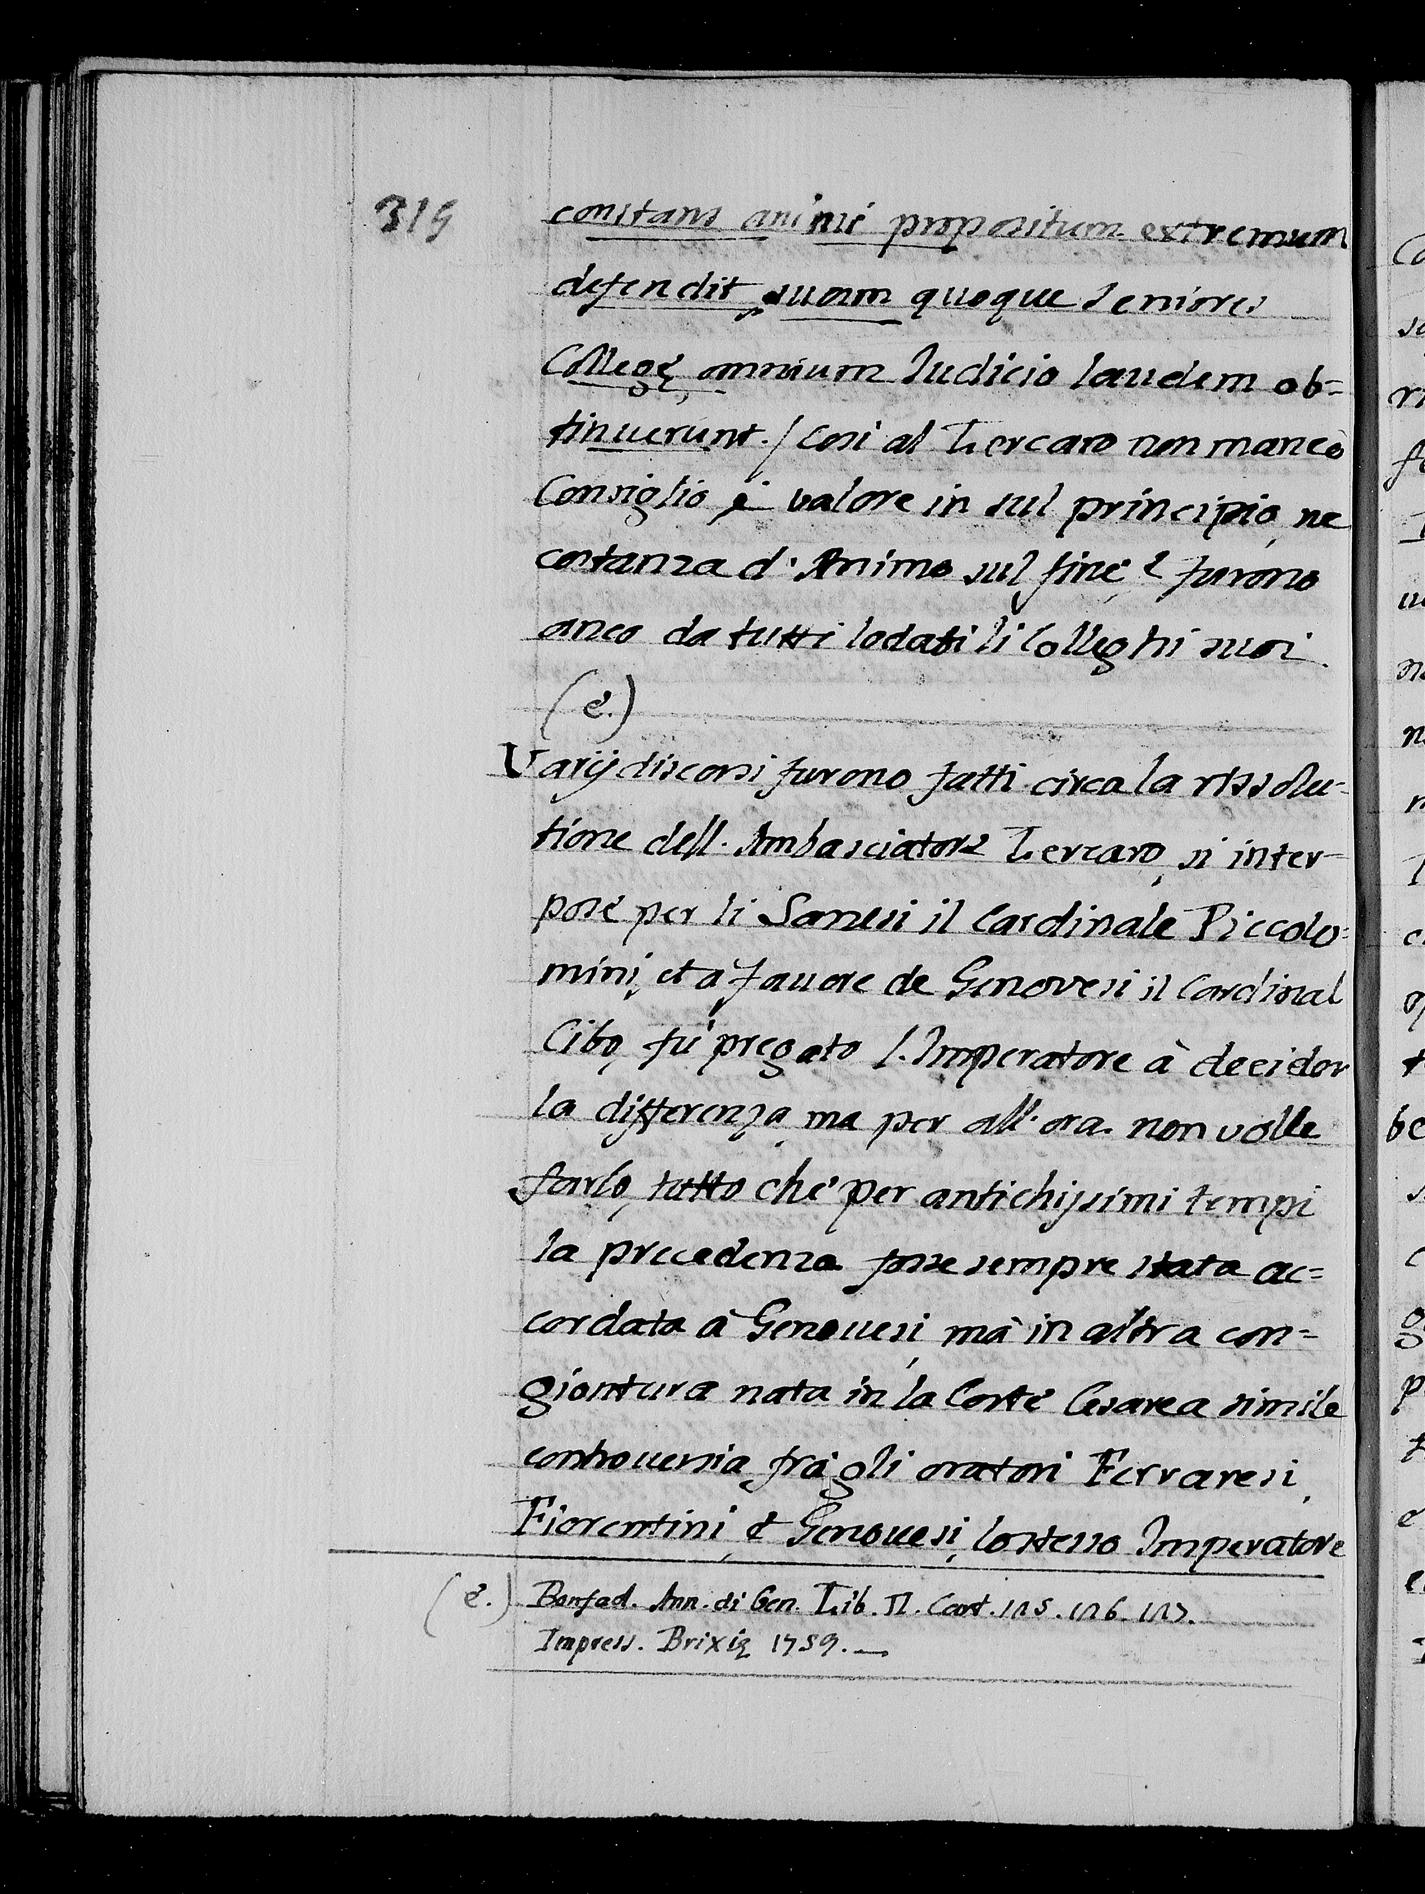 319
constans animi propositum extremum
defendit, suam quoque seniores
Collegę, omnium Iudicio laudem ob=
tinuerunt. / Cosi al Lercaro non mancò
Consiglio è valore in sul principio, ne
costanza d'Animo sul fine, e furono
anco da tutti lodati li Colleghi suoi.
(e.)
Varij discorsi furono fatti circa la rissolu=
tione dell'Ambasciatore Lercaro, si inter=
pose per li Sanesi il Cardinale Piccolo=
mini, et à fauore de Genovesi il Cardinal
Cibo, fù pregato l'Imperatore à decider
la differenza, ma per all'ora non volle
farlo, tutto che per antichissimi tempi
la precedenza fosse sempre stata ac=
cordata à Genouesi, mà in altra con=
giontura nata in la Corte Cesarea simile
controuersia frà gli oratori Ferraresi,
Fiorentini, e Genouesi, lo stesso Imperatore
(e.) Bonfad. Ann. di Gen. Lib. II. Cart.
Impress. Brixię 1759.